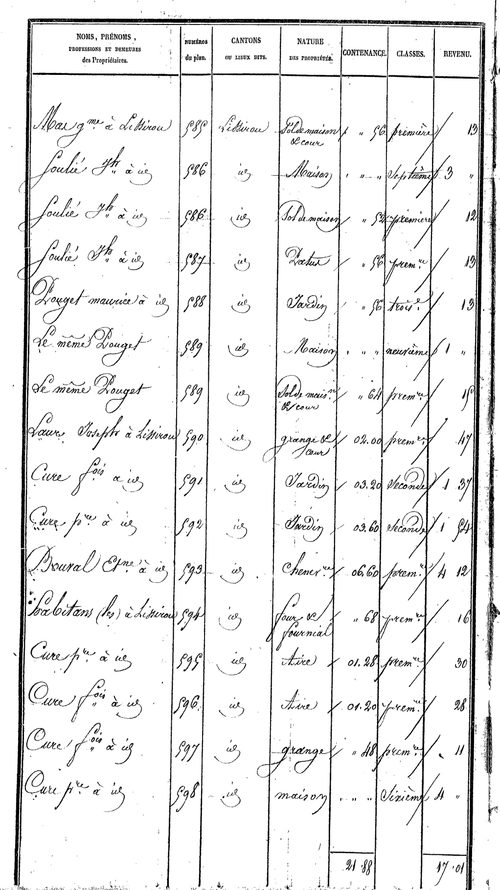 NOMS, PRÉNOMS, PROFESSIONS ET DEMEURES des Propriétaires. NUMÉROS du plan. CANTONS OU LIEUX DITS. NATURE DES PROPRIÉTÉS. CONTENANCE. CLASSES. REVENU.
Mas gme à Lissirou 585 Lissirou Sol de maison & cour " 56 première 13
Soulié Jh à id 586 id Maison " " Septième 3 "
Soulié Jh à id 586 id Sol de maison " 52 première 12
Soulié Jh à id 587 id Patus " 56 premre 13
Pouget maurice à id 588 id Jardin " 56 troise 13
Le même Pouget 589 id Maison " " neuvième 1 "
Le même Pouget 589 id Sol de maison & cour " 64 premre 15
Laur Joseph à Lissirou 590 id grange & cour 02.00 premre 47
Cure fois à id 591 id Jardin 03.20 Seconde 1 37
Cure pre à id 592 id Jardin 03.60 Seconde 1 54
Boural Etne à id 593 id Chenevre 06.60 premre 4 12
habitans (les) à Lissirou 594 id four & fournial " 68 premre 16
Cure pre à id 595 id Aire 01.28 premre 30
Cure fois à id 596 id Aire 01.20 premre 28
Cure fois à id 597 id grange " 48 premre 11
Cure pre à id 598 id maison " " Sixième 4 "
21.88 17.01